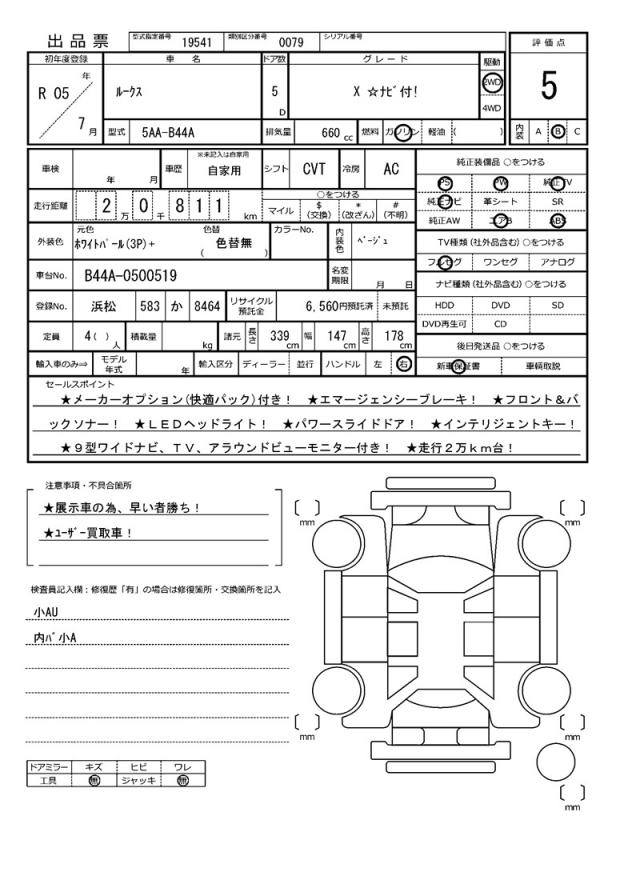 出品票 型式指定番号 19541 類別区分番号 0079 シリアル番号
評価点
初年度登録 車 名 ドア数 グレード 駆動
R 05 年 ルークス 5 D X ☆ナビ付! 2WD 4WD
5
7 月 型式 5AA-B44A 排気量 660 cc 燃料 ガソリン 軽油 ( ) 内装 A B C
車検 年 月 車歴 ※未記入は自家用 自家用 シフト CVT 冷房 AC
純正装備品 ○をつける
PS PW 純正TV
走行距離 2 万 0 千 8 1 1 km ○をつける マイル $(交換) *(改ざん) #(不明)
純正ナビ 革シート SR
純正AW エアB ABS
外装色 元色 ホワイトパール(3P)+ 色替 ( 色替無 ) カラーNo. 内装色 ベージュ
TV種類 (社外品含む) ○をつける
フルセグ ワンセグ アナログ
車台No. B44A-0500519 名変期限 月 日
ナビ種類 (社外品含む) ○をつける
登録No. 浜松 583 か 8464 リサイクル預託金 6,560円預託済 未預託
HDD DVD SD
DVD再生可 CD
定員 4( ) 人 積載量 kg 諸元 長さ 339 cm 幅 147 cm 高さ 178 cm
後日発送品 ○をつける
輸入車のみ⇒ モデル年式 年 輸入区分 ディーラー 並行 ハンドル 左 右
新車保証書 車輌取説
セールスポイント
★メーカーオプション(快適パック)付き! ★エマージェンシーブレーキ! ★フロント&バ
ックソナー! ★LEDヘッドライト! ★パワースライドドア! ★インテリジェントキー!
★9型ワイドナビ、TV、アラウンドビューモニター付き! ★走行2万km台!
注意事項・不具合箇所
★展示車の為、早い者勝ち!
★ユーザー買取車!
検査員記入欄:修復歴「有」の場合は修復箇所・交換箇所を記入
小AU
内バ小A
ドアミラー キズ ヒビ ワレ
工具 無 ジャッキ 無
〔 〕mm 〔 〕mm
〔 〕mm 〔 〕mm
〔 〕mm